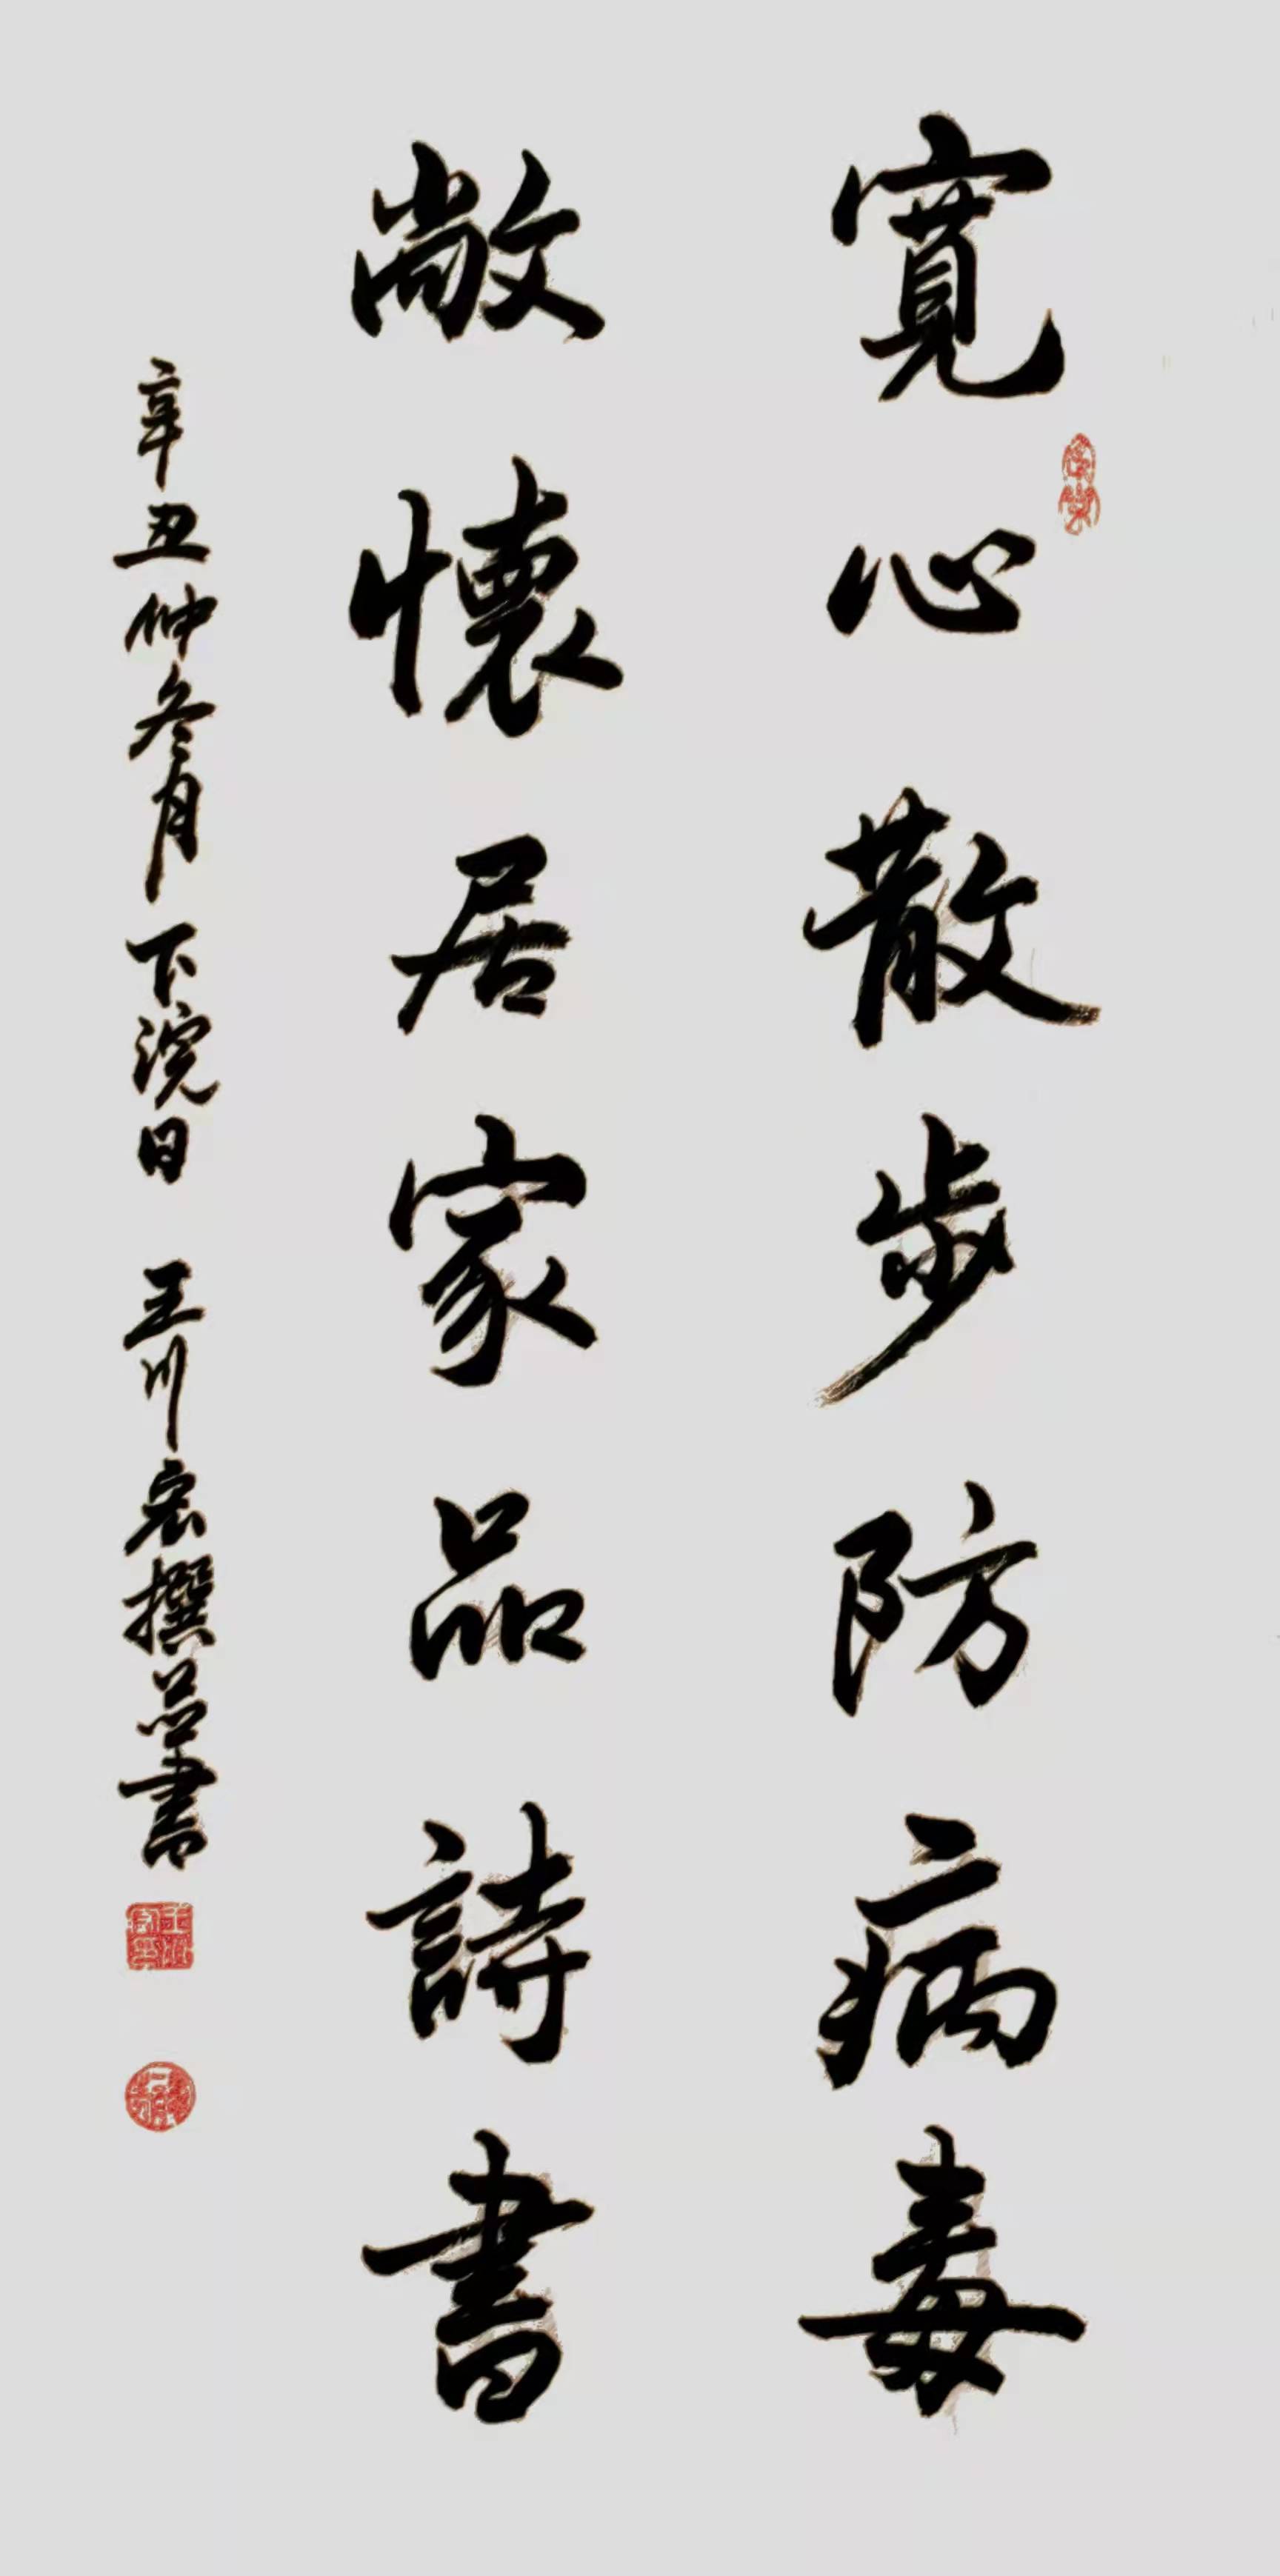 寬心散步防病毒
敞懷居家品詩書
辛丑仲冬月下浣日 王川宏撰並書